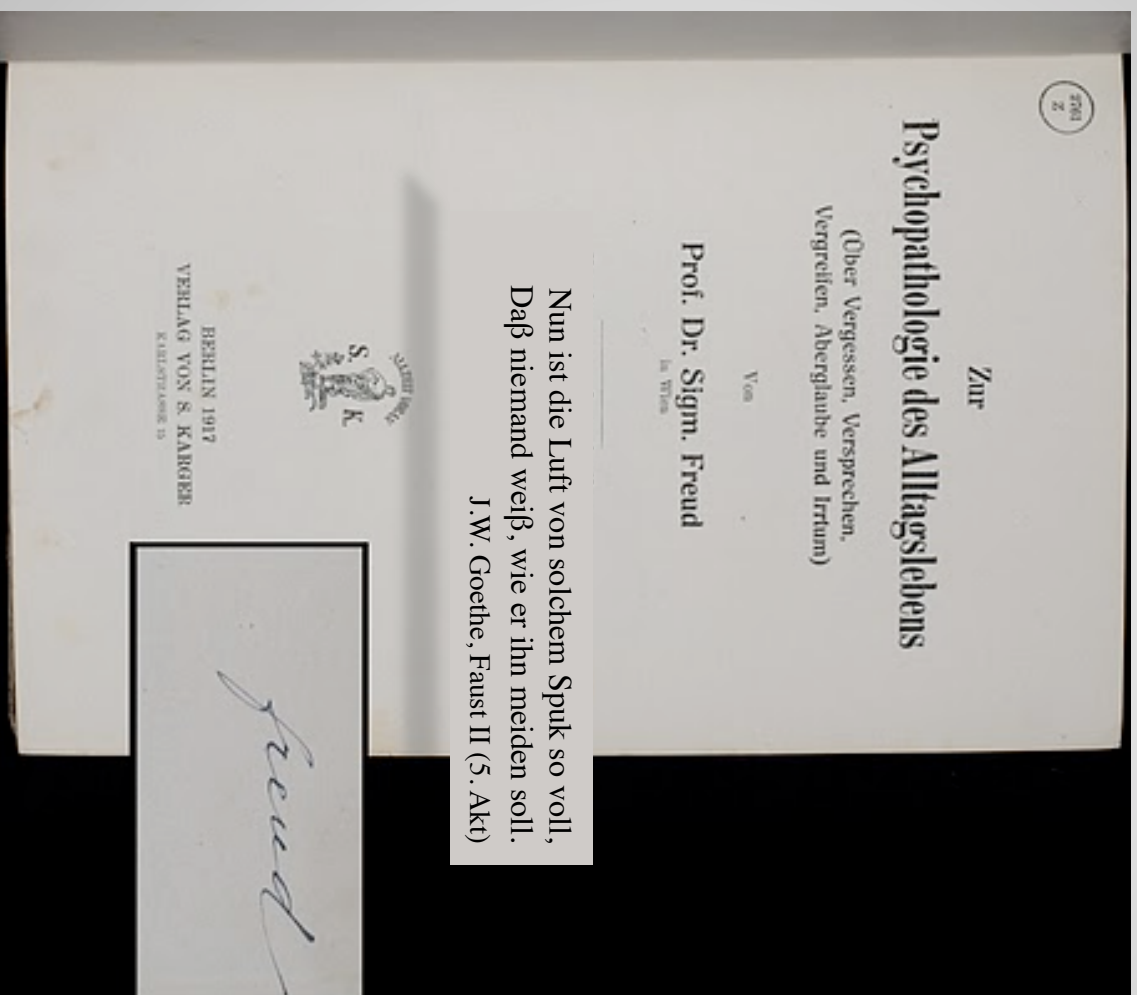 2761
Z
Zur
Psychopathologie des Alltagslebens
(Über Vergessen, Versprechen,
Vergreifen, Aberglaube und Irrtum)
Von
Prof. Dr. Sigm. Freud
in Wien
Nun ist die Luft von solchem Spuk so voll,
Daß niemand weiß, wie er ihn meiden soll.
J.W. Goethe, Faust II (5. Akt)
S. K
BERLIN 1917
VERLAG VON S. KARGER
KARLSTRASSE 15
freud